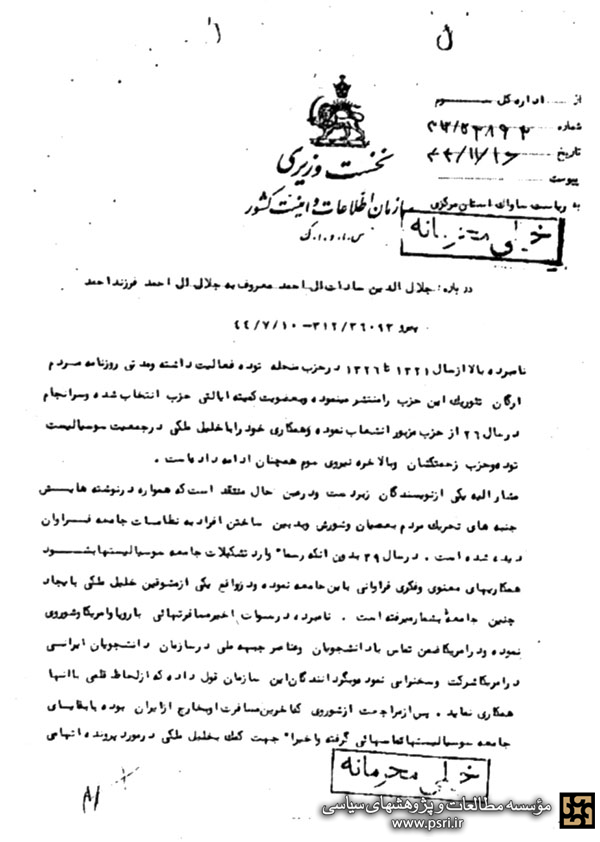 از اداره کل سوم
شماره
تاریخ ۴۴/۱۱/۱۶
پیوست
نخست وزیری
سازمان اطلاعات و امنیت کشور
س.ا.و.ا.ک
به ریاست ساواک استان مرکزی
خیلی محرمانه
درباره: جلال الدین سادات ال احمد معروف به جلال ال احمد فرزند احمد
پیرو ۳۱۲/۳۶۰۹۳-۴۴/۷/۱۰
نامبرده بالا از سال ۱۳۲۱ تا ۱۳۲۶ در حزب منحله توده فعالیت داشته و مدتی روزنامه مردم
ارگان تئوریک این حزب را منتشر مینموده و بعضویت کمیته ایالتی حزب انتخاب شده و سرانجام
در سال ۲۶ از حزب مزبور انشعاب نموده و همکاری خود را با خلیل ملکی در جمعیت سوسیالیست
توده و حزب زحمتکشان و بالاخره نیروی سوم همچنان ادامه داده است.
مشارالیه یکی از نویسندگان زبردست و در عین حال منتقد است که همواره در نوشته هایش
جنبه های تحریک مردم بعصیان و شورش و بدبین ساختن افراد به نظامات جامعه فراوان
دیده شده است. در سال ۳۹ بدون آنکه رسما" وارد تشکیلات جامعه سوسیالیستها بشود
همکاریهای معنوی و فکری فراوانی با این جامعه نموده و در واقع یکی از مشوقین خلیل ملکی با یجاد
چنین جامعهٔ بشمار میرفته است. نامبرده در سنوات اخیر مسافرتهائی باروپا و امریکا و شوروی
نموده و در امریکا ضمن تماس با دانشجویان و عناصر جبهه ملی در سازمان دانشجویان ایرانی
در امریکا شرکت و سخنرانی نموده و بگردانندگان این سازمان قول داده که از لحاظ قلمی با آنها
همکاری نماید. پس از مراجعت از شوروی که آخرین مسافرت او بخارج از ایران بوده با بقایای
جامعه سوسیالیستها تماسهائی گرفته و اخیرا" جهت کمک بخلیل ملکی در مورد پرونده اتهامی
خیلی محرمانه
مؤسسه مطالعات و پژوهشهای سیاسی
www.psri.ir